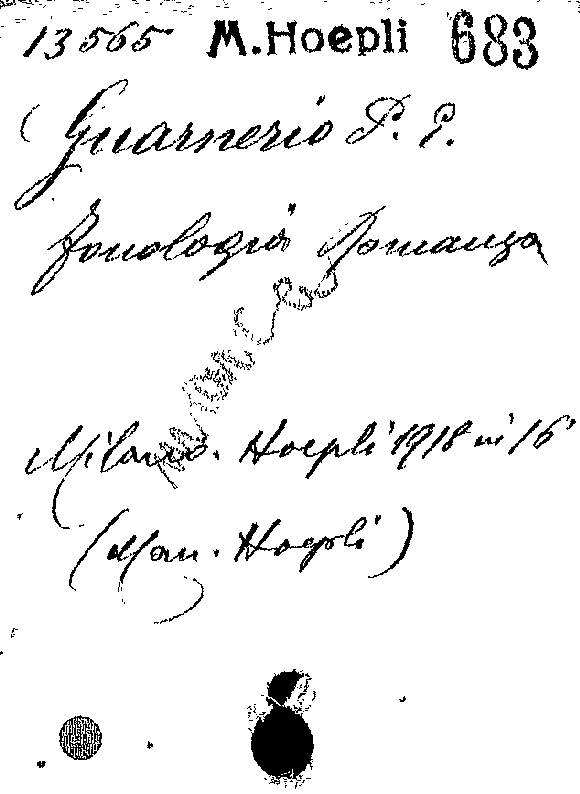 13565 M.Hoepli 683
Guarnerio P. E.
fonologia Romanza
manca
Milano. Hoepli 1918 in 16°
(Man. Hoepli)